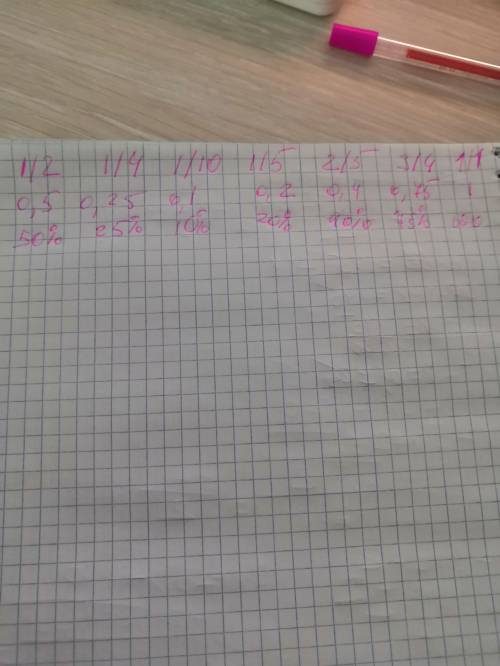 1/2 1/4 1/10 1/5 2/5 3/4 1/1
0,5 0,25 0,1 0,2 0,4 0,75 1
50% 25% 10% 20% 40% 75%